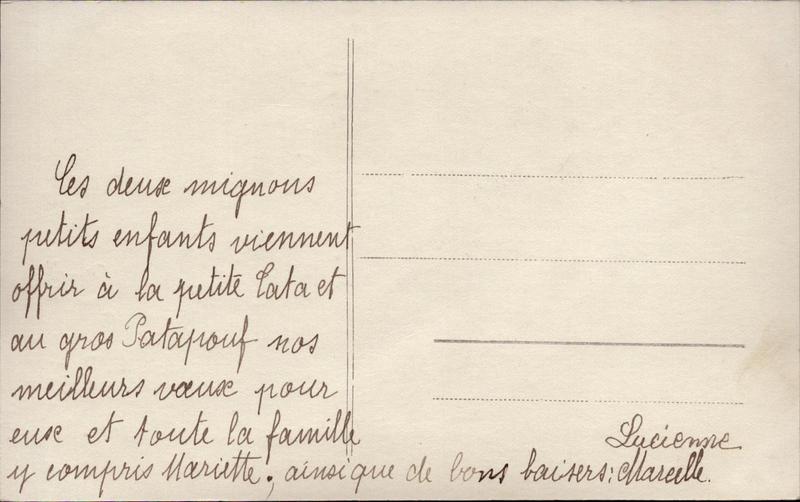 Ces deux mignons
petits enfants viennent
offrir à la petite Tata et
au gros Patapouf nos
meilleurs vœux pour
eux et toute la famille
y compris Mariette, ainsi que de bons baisers: Marcelle.
Lucienne